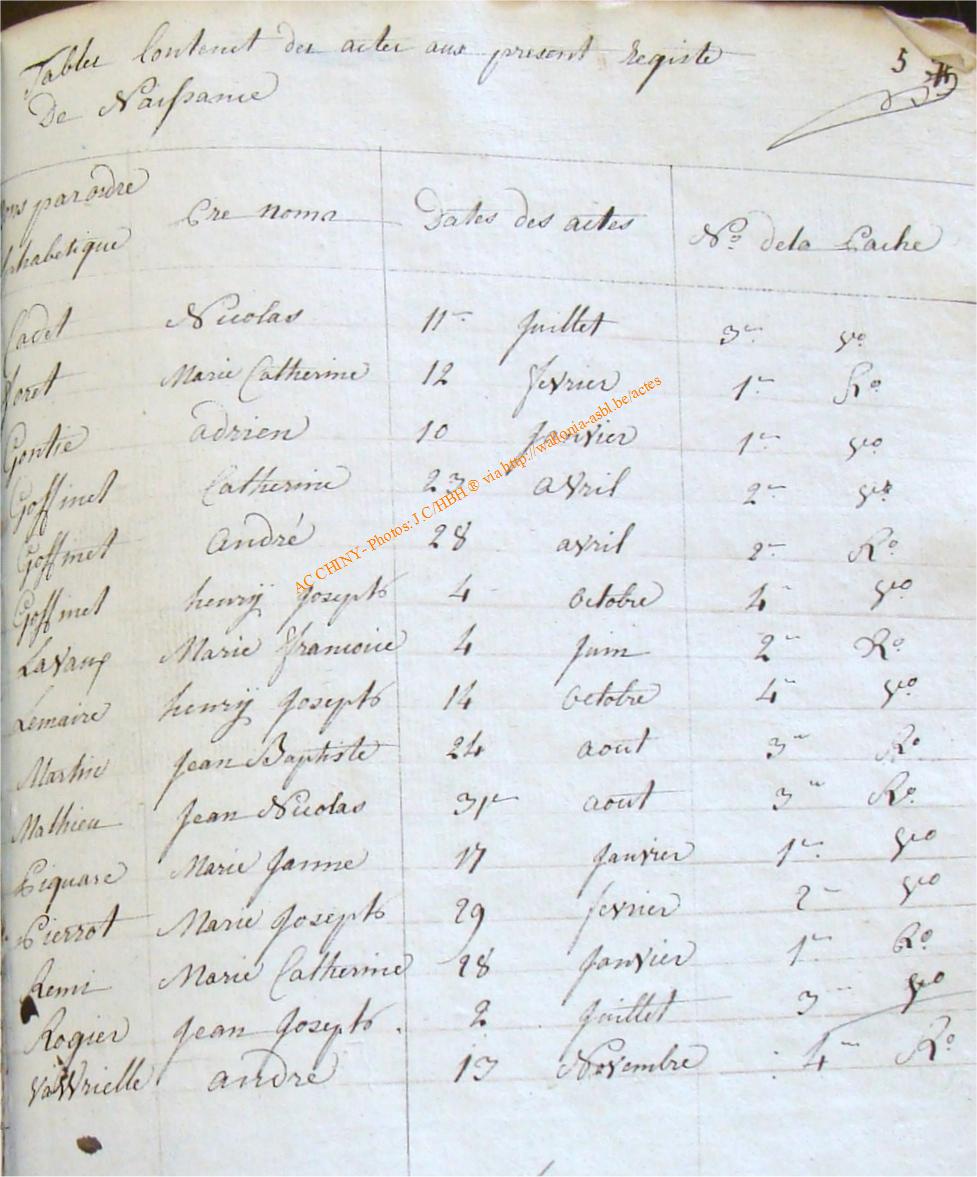 Tables Contenet des actes aux present Registe 5
De Naissance
par ordre Pre noms Dates des actes No. de la Pache
alphabetique
Cadet Nicolas 11 Juillet 3 vo
Marie Catherine 12 fevrier 1 Ro
Gontie adrien 10 Janvier 1 vo
Goffinet Catherine 23 avril 2 vo
Goffinet André 28 avril 2 Ro
Goffinet henry Joseph 4 octobre 4 vo
Lavaux Marie francoice 4 Juin 2 Ro
Lemaire henry Joseph 14 octobre 4 vo
Martin Jean Baptiste 24 aout 3 Ro
Mathieu Jean Nicolas 31 aout 3 Ro
Piquare Marie Janne 17 Janvier 1 vo
Pierrot Marie Joseph 29 fevrier 2 vo
Remi Marie Catherine 28 Janvier 1 Ro
Rogier Jean Joseph 2 Juillet 3 vo
André 13 Novembre 4 Ro
AC CHINY - Photos: J.C/HBH ® via http://wallonia-asbl.be/actes